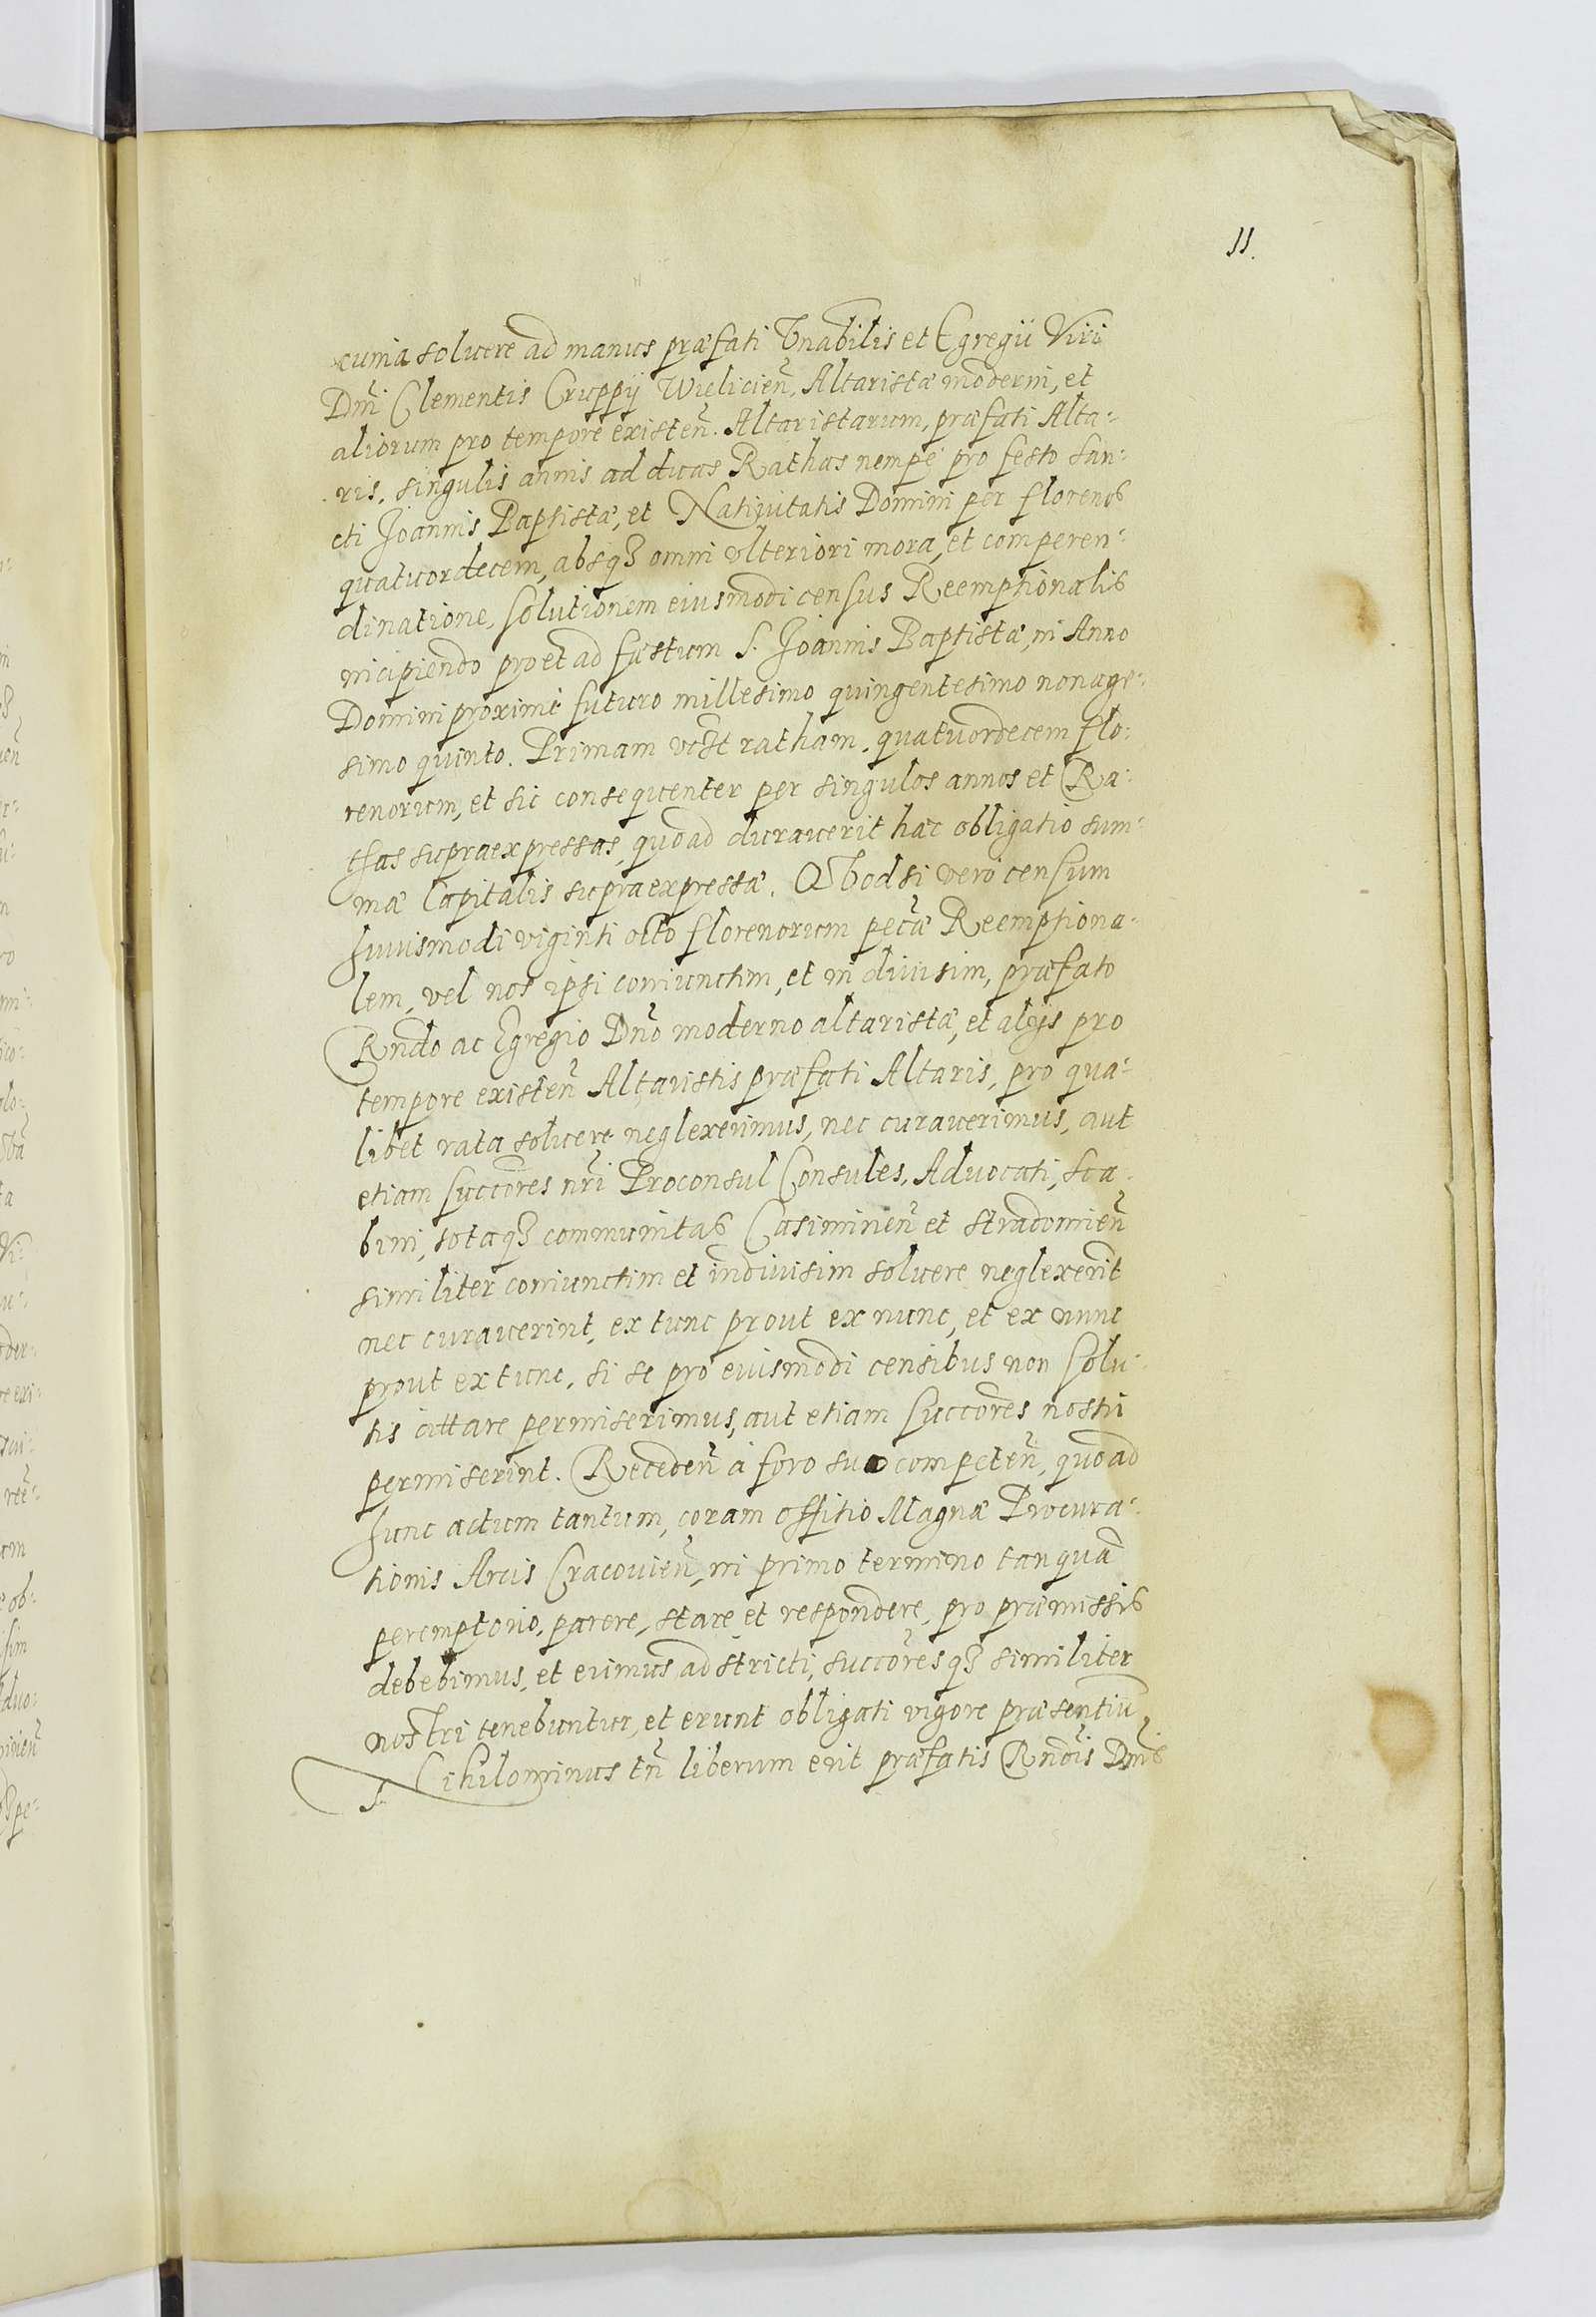 11.
cunia soluere ad manus præfati Vnabilis et Egregii Viri
Dñi Clementis Cruppÿ Wielicieñ, Altaristæ moderni, et
aliorum pro tempore existeñ. Altaristarum, præfati Alta:
ris, singulis annis ad duas Rathas nempe pro festo San:
cti Joannis Baptistæ, et Natiuitatis Domini per florenos
quatuordecem, absq3 omni vlteriori mora, et comperen:
dinatione, solutionem eiusmodi census Reemptionalis
incipiendo pro et ad fæstum S. Joannis Baptistæ, in Anno
Domini proximè futuro millesimo quingentesimo nonage:
simo quinto. Primam ratham, quatuordecem flo:
renorum, et sic consequenter per singulos annos et Ra:
thas supraexpressas, quoad durauerit hæc obligatio sum:
mæ Capitalis supraexpressæ. Qvodsi verò censum
huiusmodi viginti octo florenorum pecũæ Reemptiona:
lem, vel nos ipsi coniunctim, et in diuisim, præfato
Rndo ac Egregio Dño moderno altaristæ, et alÿs pro
tempore existeñ Altaristis præfati Altaris, pro qua:
libet rata soluere neglexerimus, nec curauerimus, aut
etiam succores nri Proconsul Consules, Aduocati, Sca:
bini, totaq3 communitas Casimirieñ et Stradomieñ
similiter coniunctim et indiuisim soluere neglexerit
nec curauerint, ex tunc prout ex nunc, et ex nunc
prout ex tunc, si se pro eiusmodi censibus non solu:
tis cittare permiserimus, aut etiam succores nostri
permiserint. Recedeñ à foro suo competeñ, quoad
hunc actum tantum, coram offitio Magnæ Procura:
tionis Arcis Cracouieñ, in primo termino tanquã
peremptorio, parere, stare et respondere, pro præmissis
debebimus, et erimus adstricti, succoresq3 similiter
nostri tenebuntur, et erunt obligati vigore præsentiũ
Nihilominus tñ liberum erit præfatis Rndis Dnis